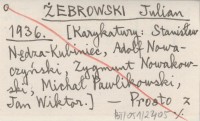 ŻEBROWSKI Julian
1936. [Karykatury: Stanisław
Nędza-Kubiniec, Adolf Nowa-
czyński, Zygmunt Nowakow-
ski, Michał Pawlikowski,
Jan Wiktor.] — Prosto z